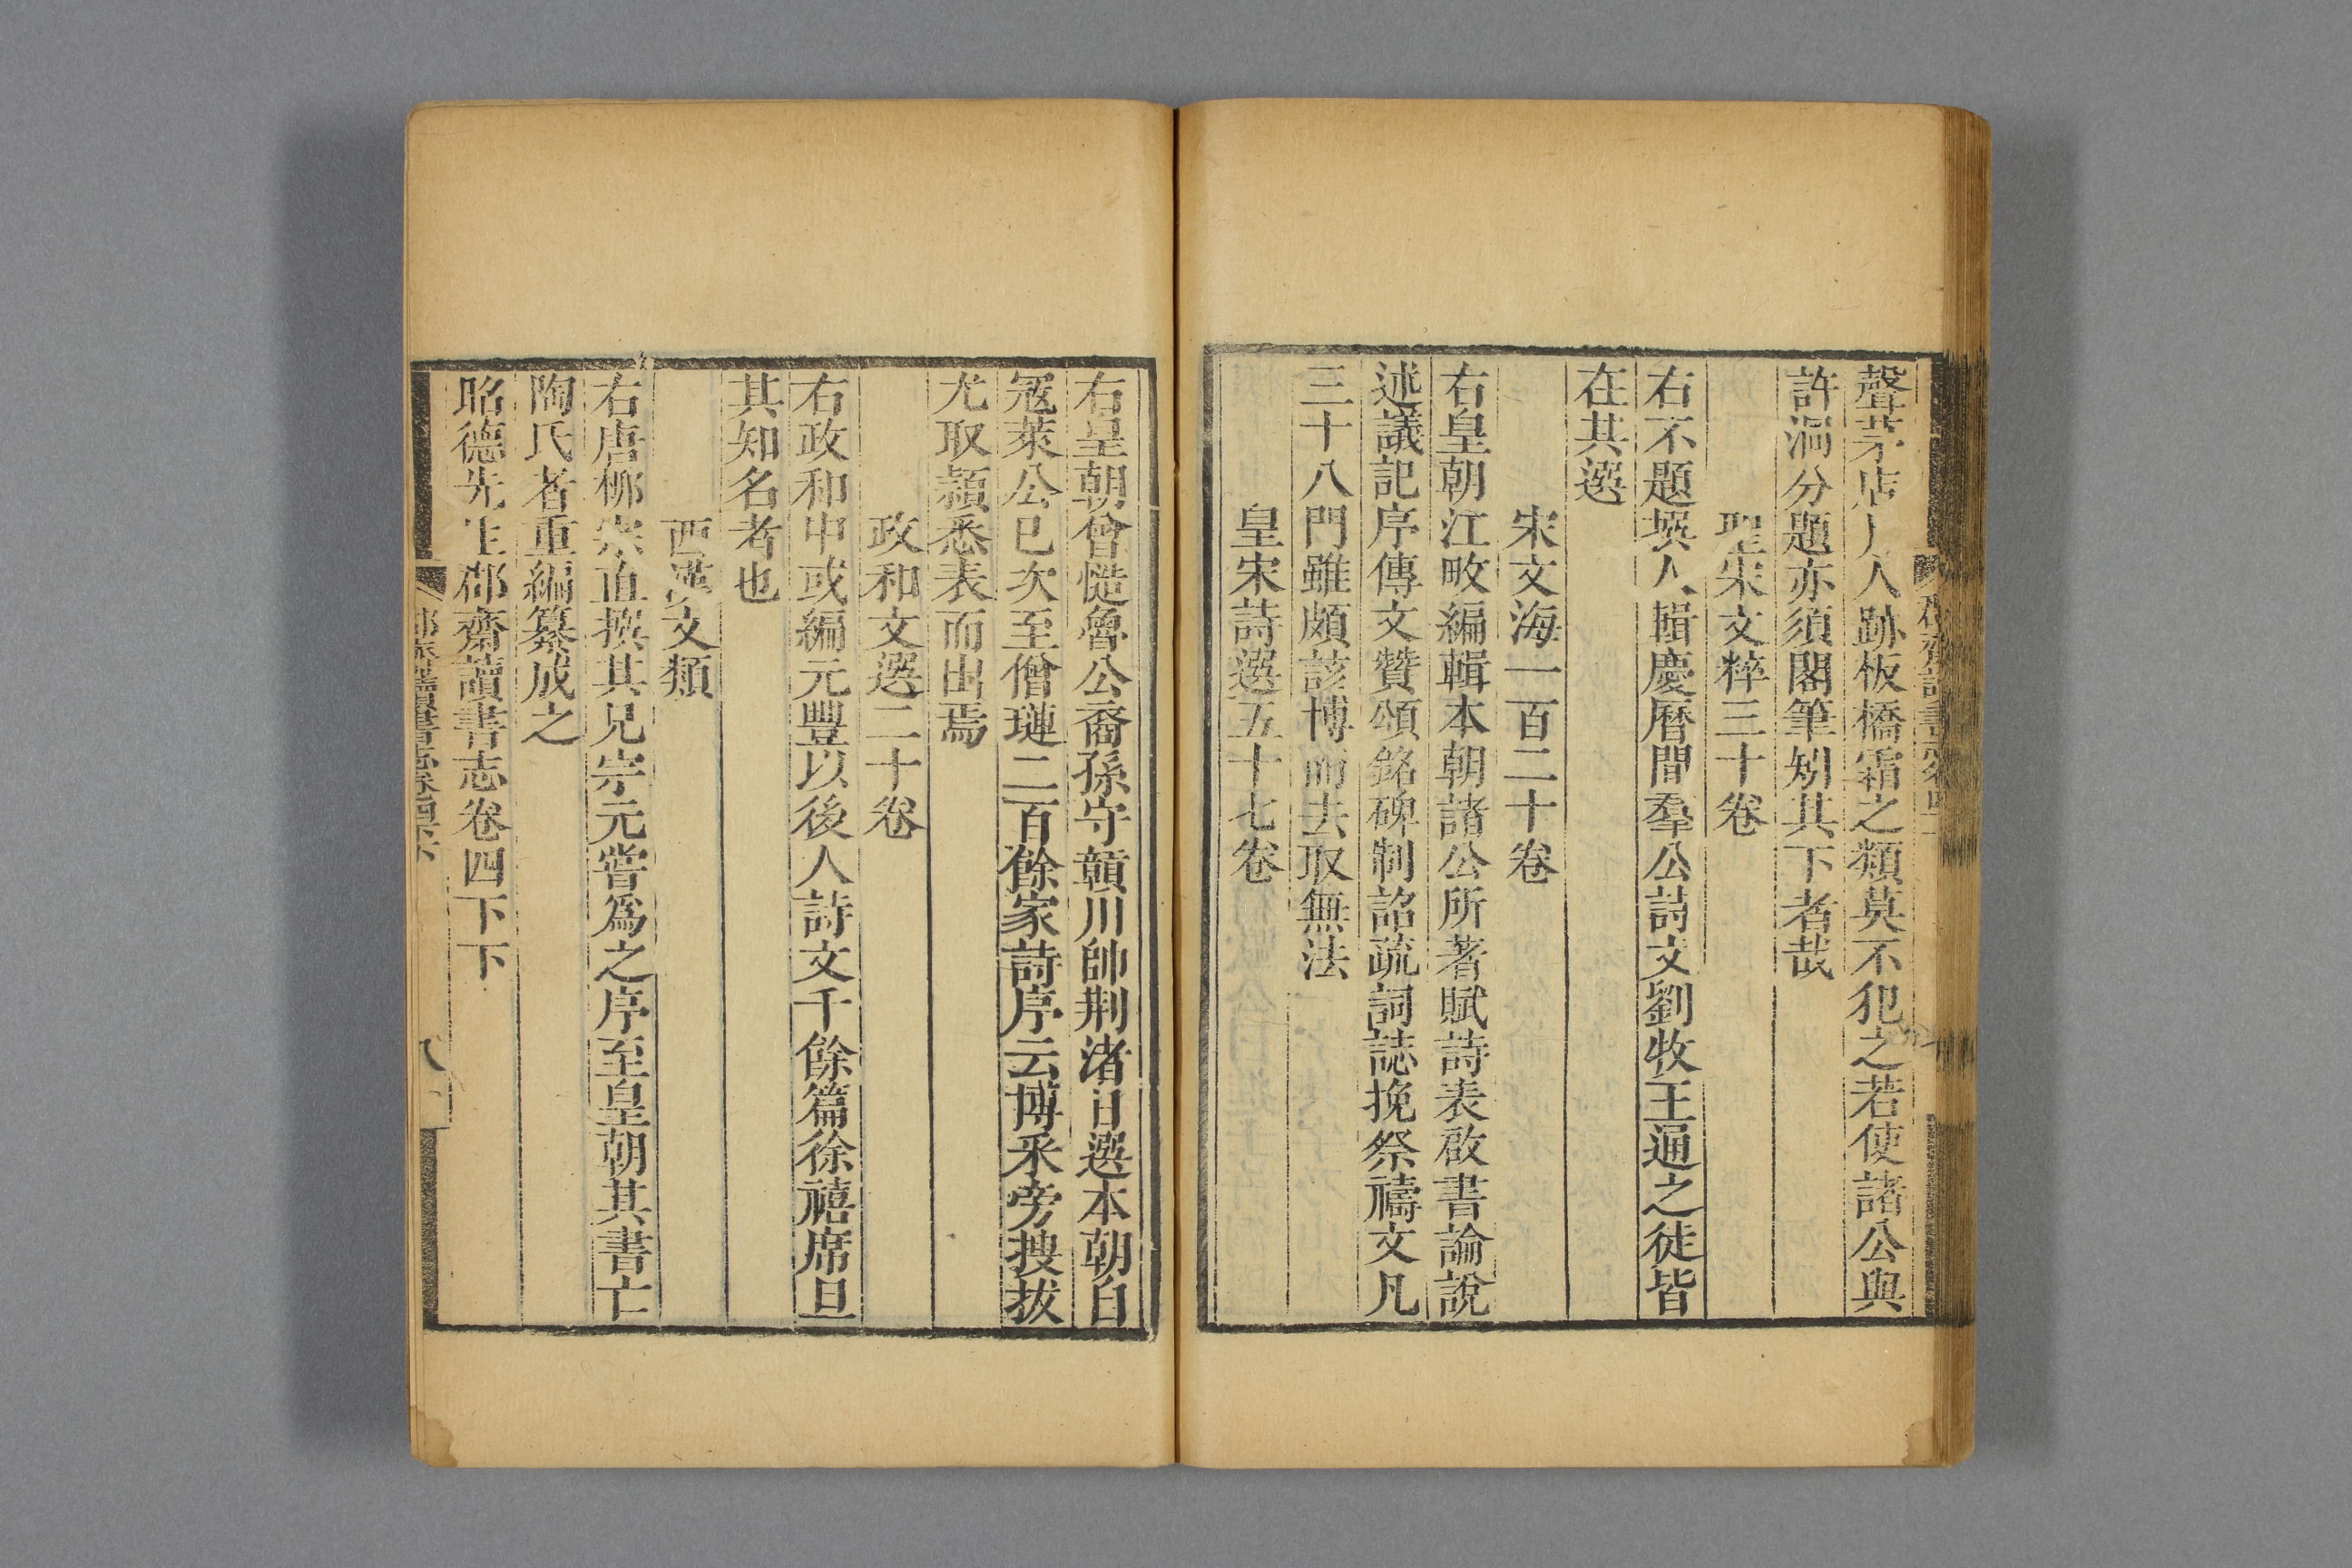 聲茅店月人跡板橋霜之類莫不犯之若使諸公與
許洞分題亦須閣筆矧其下者哉
聖宋文粹三十卷
右不題撰人輯慶曆間羣公詩文劉牧王通之徒皆
在其選
宋文海一百二十卷
右皇朝江畋編輯本朝諸公所著賦詩表啟書論說
述議記序傳文贊頌銘碑制詔疏詞誌挽祭禱文凡
三十八門雖頗該博而去取無法
皇宋詩選五十七卷
右皇朝曾慥魯公裔孫守贑川帥荆渚日選本朝自
寇萊公已次至僧璉二百餘家詩序云博采旁搜拔
尤取穎悉表而出焉
政和文選二十卷
右政和中或編元豐以後人詩文千餘篇徐禧席旦
其知名者也
西漢文類
右唐柳宗直撰其兄宗元嘗爲之序至皇朝其書亡
陶氏者重編纂成之
昭德先生郡齋讀書志卷四下下
郡齋讀書志卷四下
八